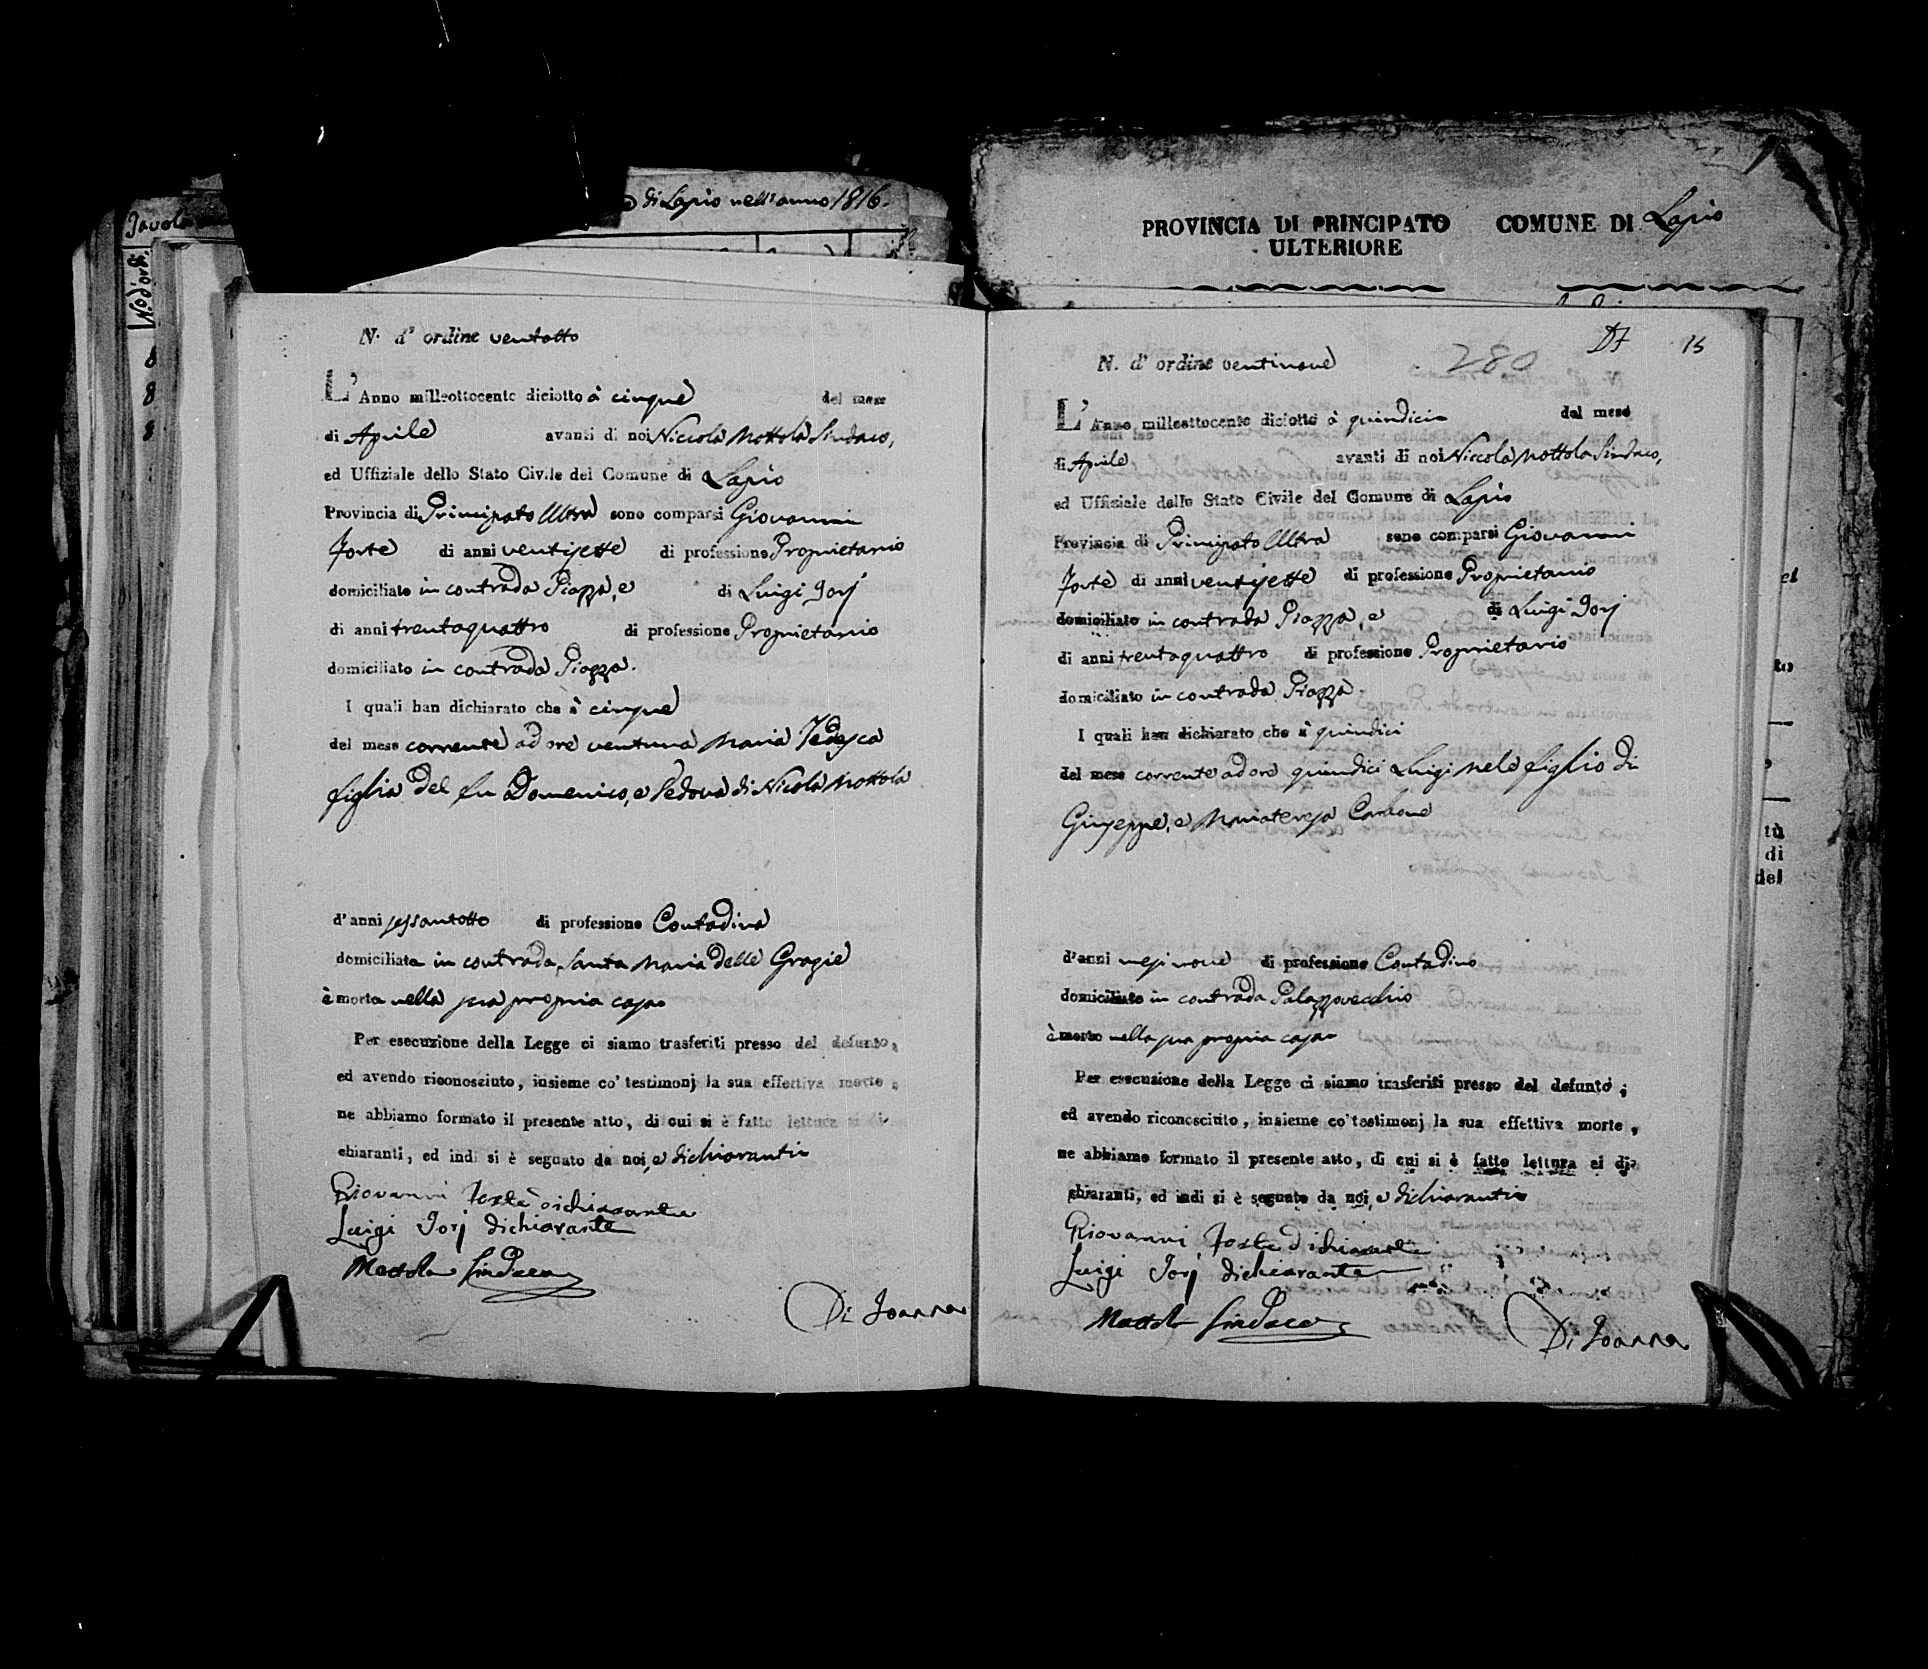 Tavola
di Lapio nell'anno 1816.
N.o d'ord.
8
8
8
PROVINCIA DI PRINCIPATO ULTERIORE COMUNE DI Lapio
N. d' ordine ventotto
L' Anno milleottocento diciotto à cinque del mese
di Aprile avanti di noi Niccola Mottola Sindaco,
ed Uffiziale dello Stato Civile del Comune di Lapio
Provincia di Principato Ultra sono comparsi Giovanni
Forte di anni ventisette di professione Proprietario
domiciliato in contrada Piazza, e di Luigi Iorj
di anni trentaquattro di professione Proprietario
domiciliato in contrada Piazza.
I quali han dichiarato che à cinque
del mese corrente ad ore ventuna Maria Tedesca
figlia del fu Domenico, e Vedova di Nicola Mottola
d'anni sessantotto di professione Contadina
domiciliata in contrada Santa Maria delle Grazie
è morta nella sua propria casa
Per esecuzione della Legge ci siamo trasferiti presso del defunto,
ed avendo riconosciuto, insieme co' testimonj la sua effettiva morte,
ne abbiamo formato il presente atto, di cui si è fatto lettura ai di-
chiaranti, ed indi si è segnato da noi, e dichiaranti
Giovanni Forte dichiarante
Luigi Iorj dichiarante
Mottola Sindaco
Di Joanna
280 15
N. d' ordine ventinove
L' Anno milleottocento diciotto à quindici del mese
di Aprile avanti di noi Niccola Mottola Sindaco,
ed Uffiziale dello Stato Civile del Comune di Lapio
Provincia di Principato Ultra sono comparsi Giovanni
Forte di anni ventisette di professione Proprietario
domiciliato in contrada Piazza, e di Luigi Iorj
di anni trentaquattro di professione Proprietario
domiciliato in contrada Piazza
I quali han dichiarato che à quindici
del mese corrente ad ore quindici Luigi Mele figlio di
Giuseppe, e Mariateresa Carbone
d'anni mesi nove di professione Contadino
domiciliato in contrada Palazzovecchio
è morto nella sua propria casa
Per esecuzione della Legge ci siamo trasferiti presso del defunto,
ed avendo riconosciuto, insieme co' testimonj la sua effettiva morte,
ne abbiamo formato il presente atto, di cui si è fatto lettura ai di-
chiaranti, ed indi si è segnato da noi, e dichiaranti
Giovanni Forte dichiarante
Luigi Iorj dichiarante
Mottola Sindaco
Di Joanna
to
tù
di
del